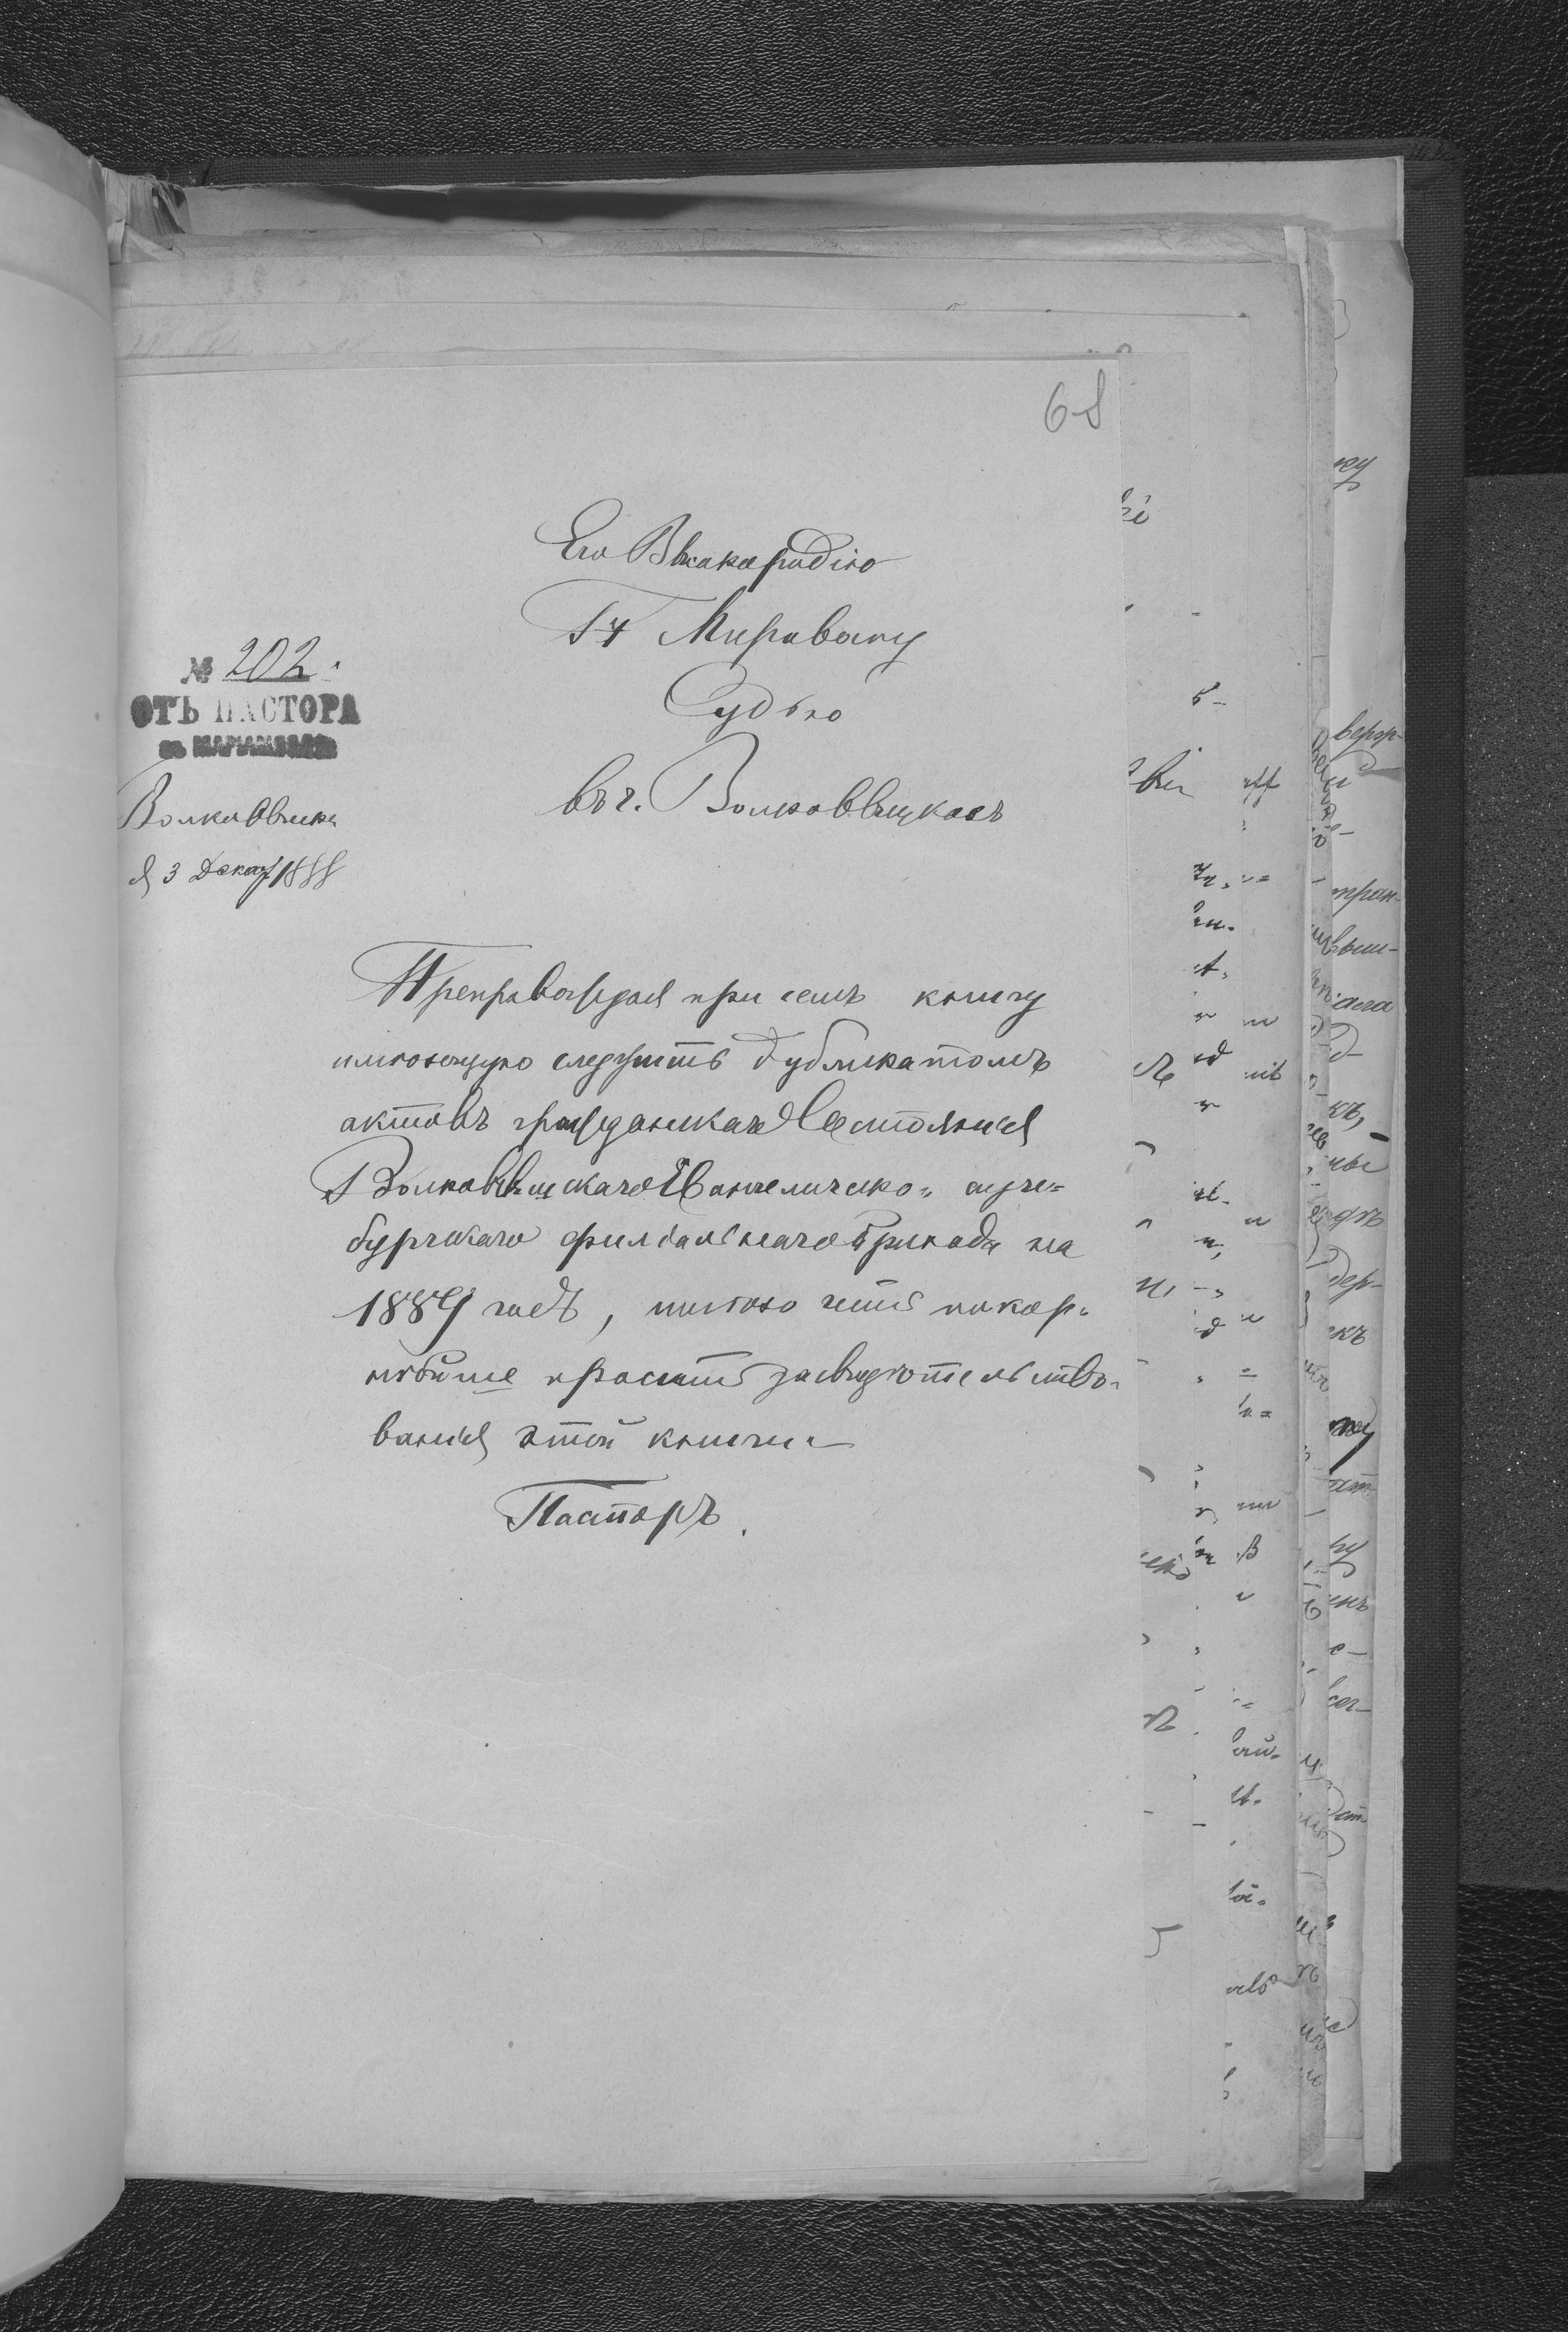 68
Его Высокородію
Гу Мировому
Судьѣ
въ г. Волковышкахъ
№ 202.
ОТЪ ПАСТОРА
въ МАРІАМПОЛѢ
Волковышки
д 3 Декаб 1888
Препровождая при семъ книгу
имѣющую служить дубликатомъ
актовъ гражданскаго Состоянія
Волковышскаго Евангелическо-аугс=
бургскаго филіальнаго прихода на
1889 годъ, имѣю честь покор-
нѣйше просить засвидѣтельство-
ванія этой книги
Пасторъ.